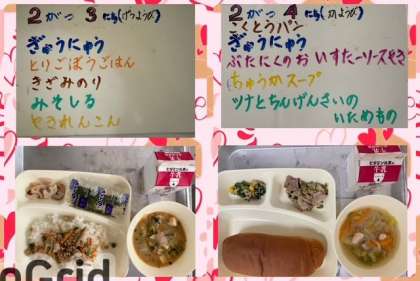 2がつ 3にち(げつようび)
ぎゅうにゅう
とりごぼうごはん
きざみのり
みそしる
やきれんこん
2がつ 4にち(かようび)
こくとうパン
ぎゅうにゅう
ぶたにくのお いすたーソースやき
ちゅうかスープ
ツナとちんげんさいの
いためもの
oGrid